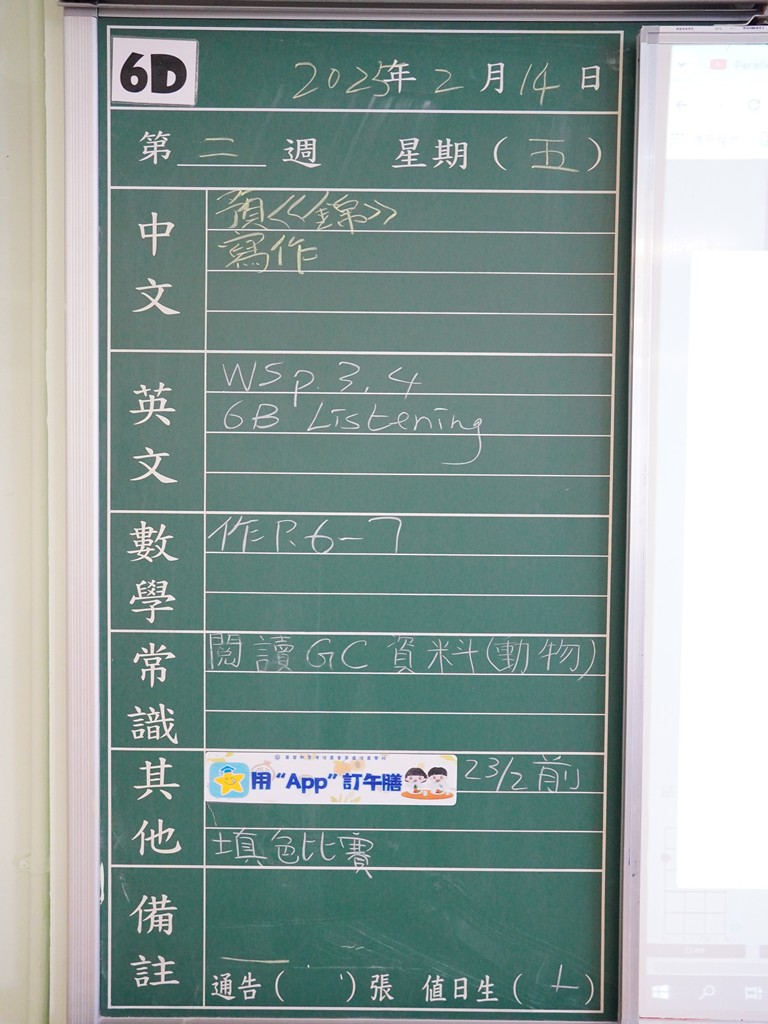 6D
2025年 2 月 14 日
第 二 週 星期 ( 五 )
中文
預<<錦>>
寫作
英文
WS p. 3, 4
6B Listening
數學
作P. 6-7
常識
閱讀 GC 資料(動物)
其他
用“App”訂午膳
23/2 前
填色比賽
備註
通告 ( ) 張 值日生 ( )